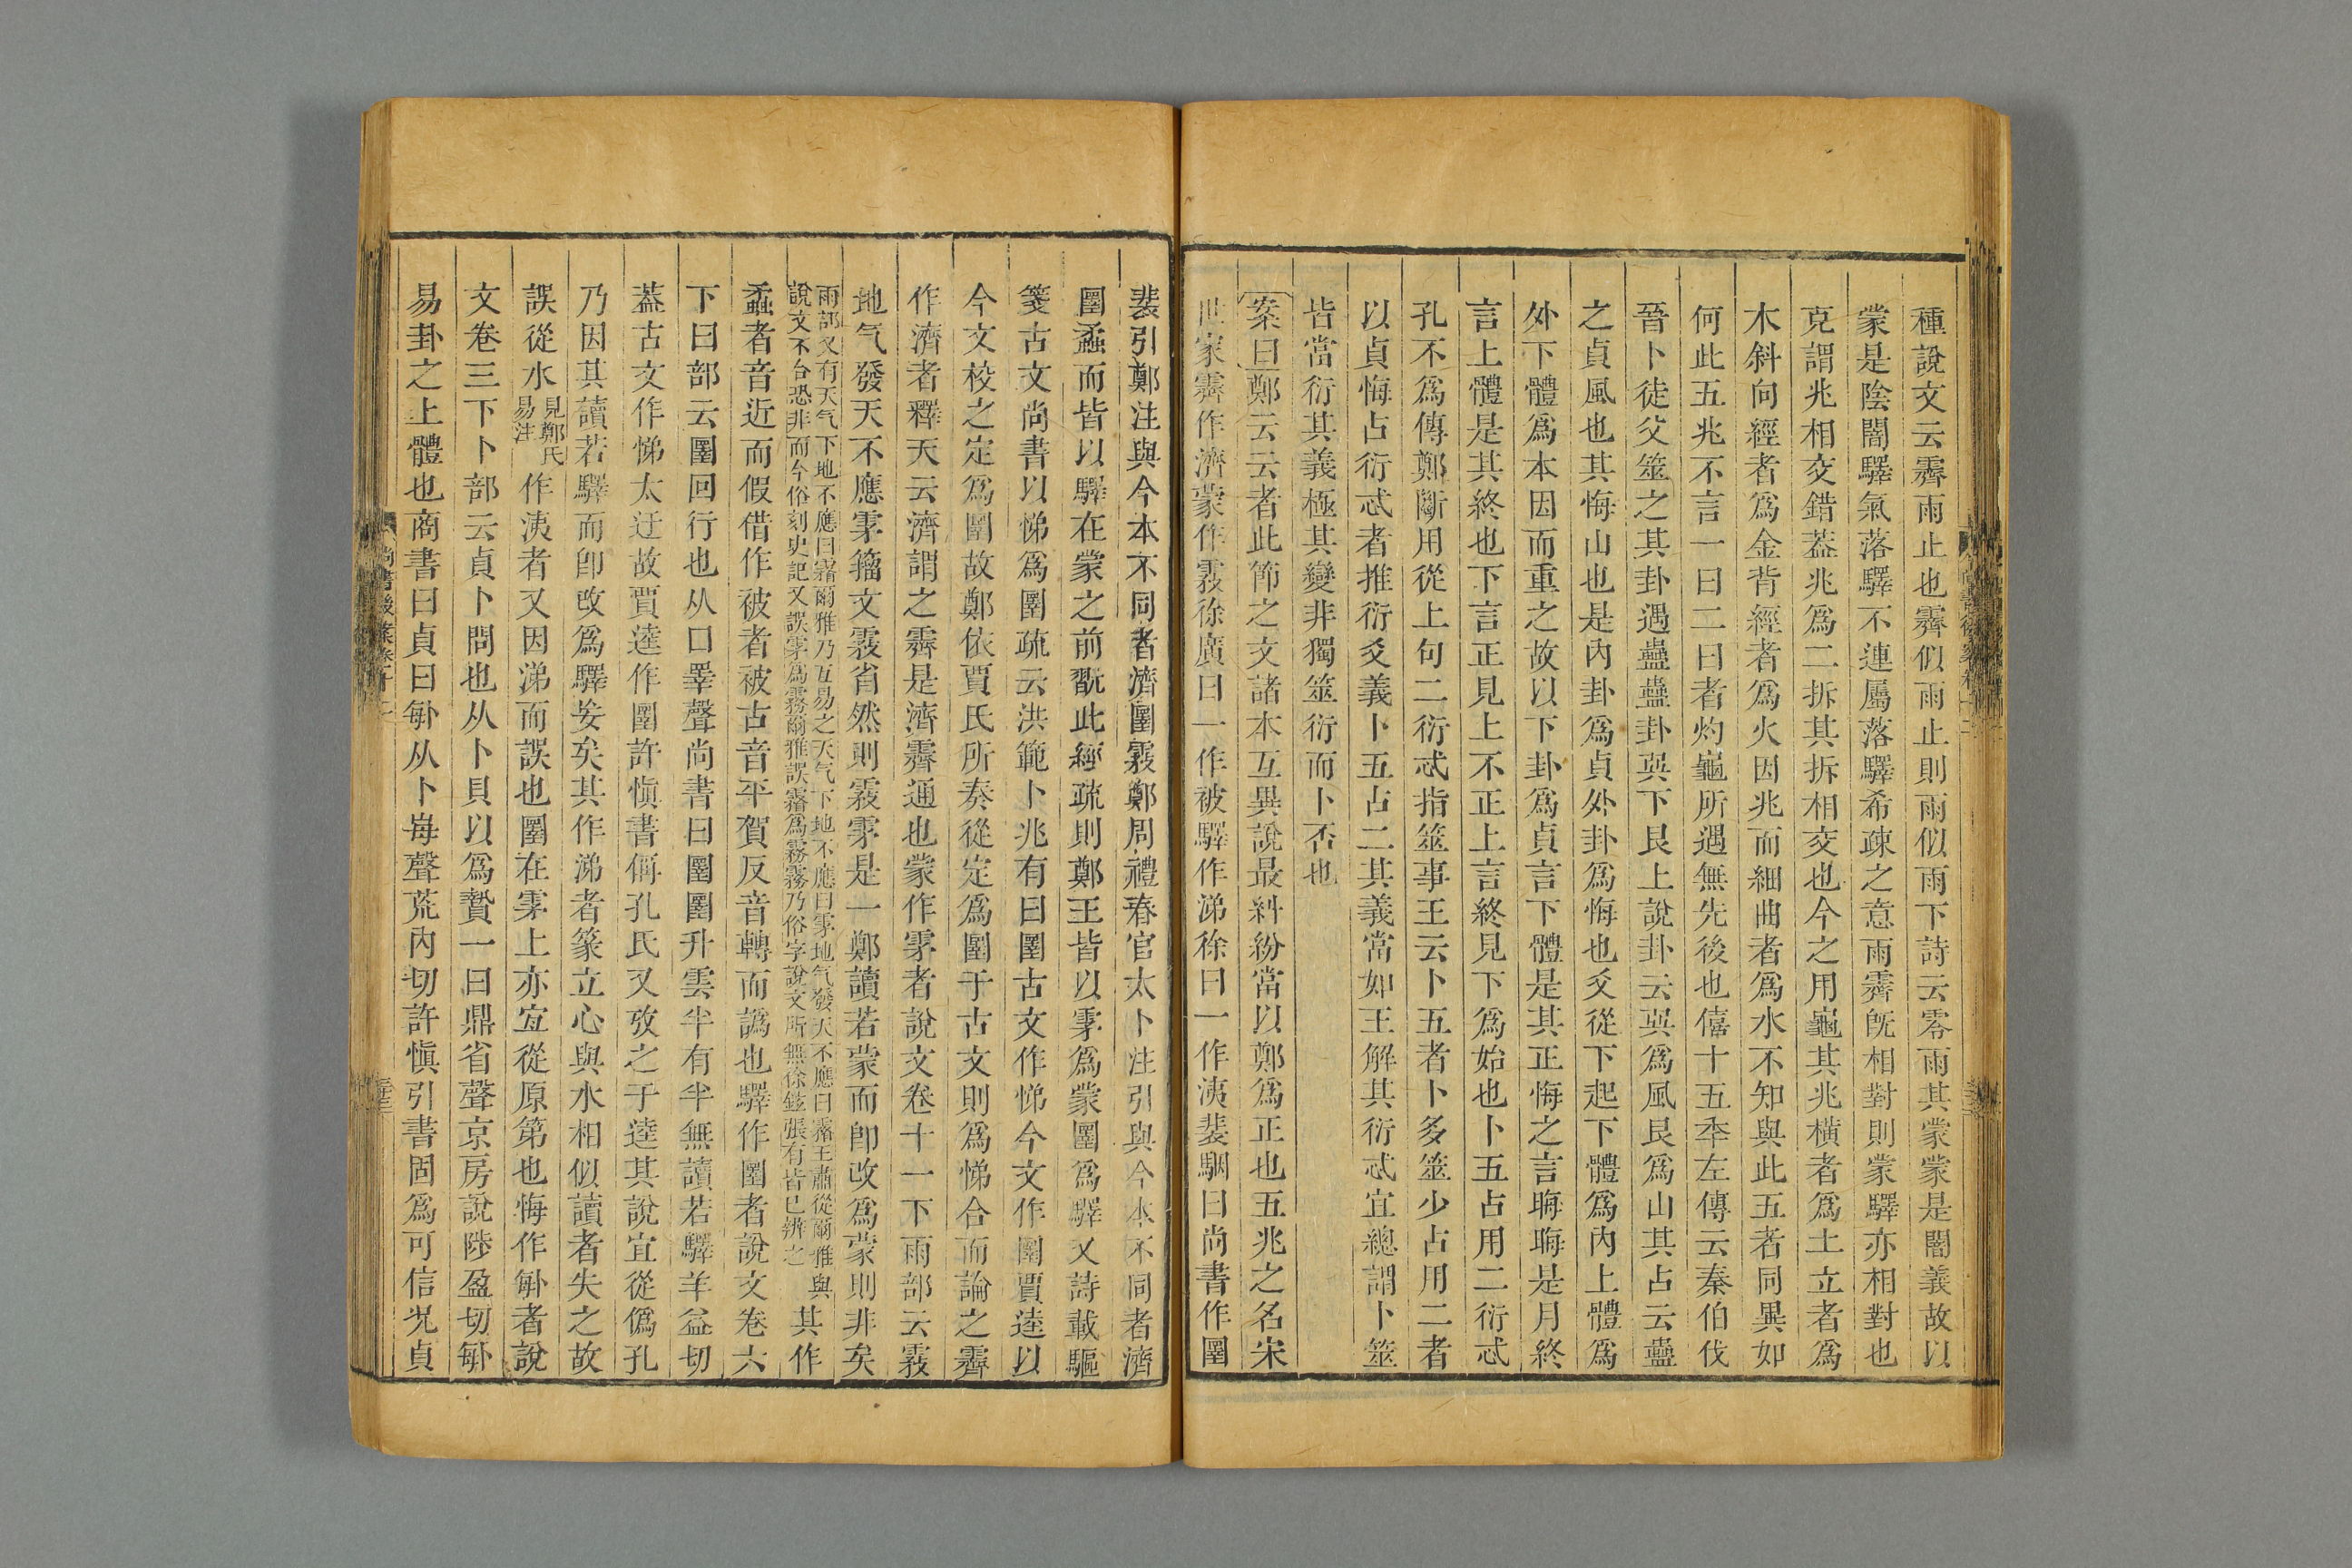 種說文云霽雨止也霽似雨止則雨似雨下詩云零雨其蒙蒙是闇義故以
蒙是陰闇驛氣落驛不連屬落驛希疎之意雨霽旣相對則蒙驛亦相對也
克謂兆相交錯葢兆爲二拆其拆相交也今之用龜其兆橫者爲土立者爲
木斜向經者爲金背經者爲火因兆而細曲者爲水不知與此五者同異如
何此五兆不言一曰二曰者灼龜所遇無先後也僖十五秊左傳云秦伯伐
晉卜徒父筮之其卦遇蠱蠱卦巽下艮上說卦云巽爲風艮爲山其占云蠱
之貞風也其悔山也是內卦爲貞外卦爲悔也爻從下起下體爲內上體爲
外下體爲本因而重之故以下卦爲貞言下體是其正悔之言晦晦是月終
言上體是其終也下言正見上不正上言終見下爲始也卜五占用二衍忒
孔不爲傳鄭斷用從上句二衍忒指筮事王云卜五者卜多筮少占用二者
以貞悔占衍忒者推衍爻義卜五占二其義當如王解其衍忒宜總謂卜筮
皆當衍其義極其變非獨筮衍而卜否也
案曰鄭云云者此節之文諸本互異說最糾紛當以鄭爲正也五兆之名宋
世家霽作濟蒙作霚徐廣曰一作被驛作涕徐曰一作洟裴駰曰尙書作圛
裴引鄭注與今本不同者濟圛霚鄭周禮春官太卜注引與今本不同者濟
圛蟊而皆以驛在蒙之前翫此經疏則鄭王皆以雺爲蒙圛爲驛又詩載驅
箋古文尙書以悌爲圛疏云洪範卜兆有曰圛古文作悌今文作圛賈逵以
今文校之定爲圛故鄭依賈氏所奏從定爲圛于古文則爲悌合而論之霽
作濟者釋天云濟謂之霽是濟霽通也蒙作雺者說文卷十一下雨部云霚
地气發天不應雺籀文霚省然則霚雺是一鄭讀若蒙而卽改爲蒙則非矣
雨部又有天气下地不應曰霿爾雅乃互易之天气下地不應曰雺地气發天不應曰霿王肅從爾雅與
說文不合恐非而今俗刻史記又誤雺爲霧爾雅誤霿爲霧霧乃俗字說文所無徐鉉張有皆已辨之其作
蟊者音近而假借作被者被古音平賀反音轉而譌也驛作圛者說文卷六
下囗部云圛回行也从口睪聲尙書曰圛圛升雲半有半無讀若驛羊益切
葢古文作悌太迂故賈逵作圛許愼書偁孔氏又攷之于逵其說宜從僞孔
乃因其讀若驛而卽改爲驛妄矣其作涕者篆立心與水相似讀者失之故
誤從水見鄭氏易注作洟者又因涕而誤也圛在雺上亦宜從原第也悔作𠧩者說
文卷三下卜部云貞卜問也从卜貝以爲贄一曰鼎省聲京房說陟盈切𠧩
易卦之上體也商書曰貞曰𠧩从卜每聲荒內切許愼引書固爲可信況貞
尙書後案卷十二